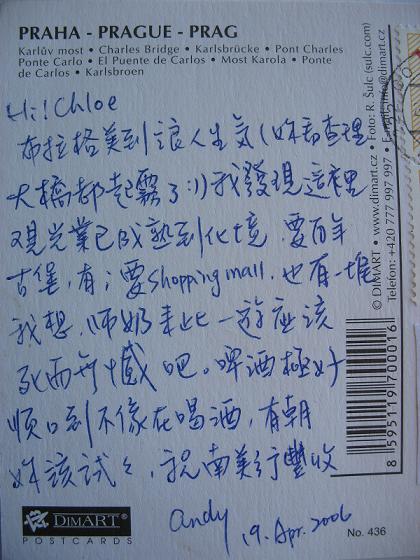 PRAHA - PRAGUE - PRAG
Karlův most • Charles Bridge • Karlsbrücke • Pont Charles
Ponte Carlo • El Puente de Carlos • Most Karola • Ponte
de Carlos • Karlsbroen
Hi! Chloe
布拉格美到讓人生氣(妳看查理
大橋都起霧了:))我發現這裡
觀光業已成熟到化境,要百年
古堡,有;要shopping mall,也有一堆
我想,師奶來此一遊應該
死而無憾吧。啤酒極好
順口到不像在喝酒,有朝
妳該試々,祝南美行豐收
Andy
19. Apr. 2006
DIMART
POSTCARDS
No. 436
© DIMART • www.dimart.cz • Foto: R. Šulc (sulc.com)
Telefon: +420 777 997 997 • E-mail: info@dimart.cz
8 595119 700016